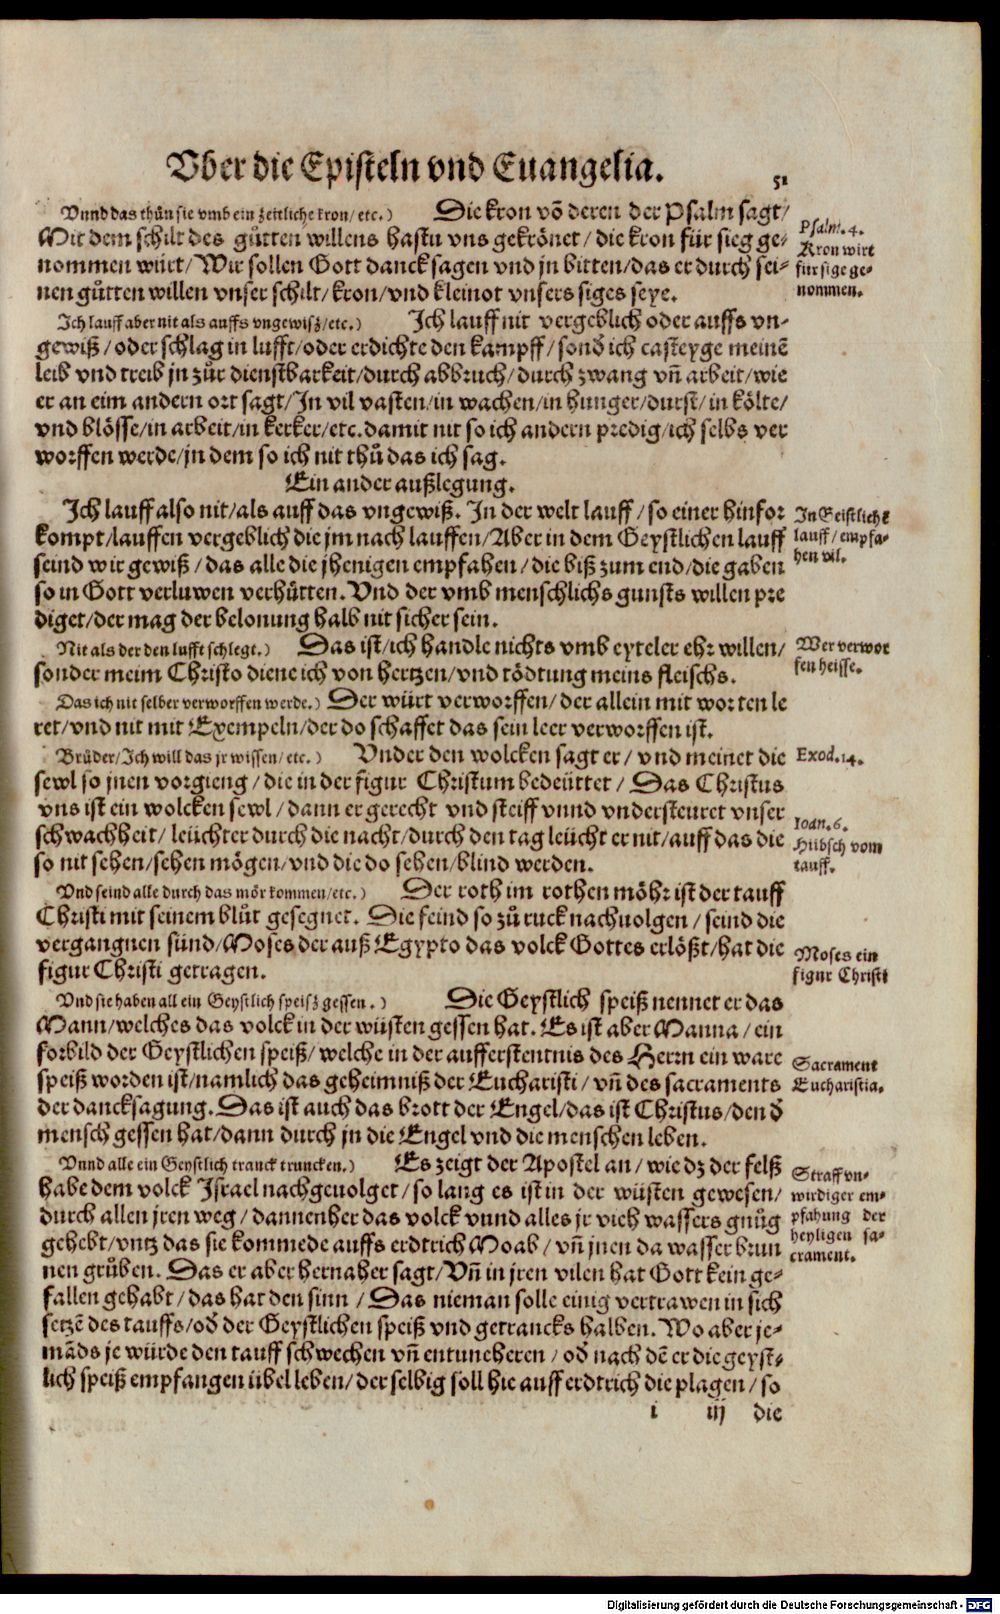 Vber die Episteln vnd Euangelia.
51
Vnnd das thůn sie vmb ein zeitliche kron/etc.) Die kron vō deren der Psalm sagt/
Mit dem schilt des gůtten willens hastu vns gekrönet/die kron für sieg ge-
nommen würt/Wir sollen Gott danck sagen vnd jn bitten/das er durch sei-
nen gůtten willen vnser schilt/kron/vnd kleinot vnsers siges seye.
Psalm.4.
Kron wirt
für sige ge-
nommen.
Ich lauff aber nit als auffs vngewisz/etc.) Ich lauff nit vergeblich oder auffs vn-
gewiß/oder schlag in lufft/oder erdichte den kampff/sonď ich casteyge meinē
leib vnd treib jn zůr dienstbarkeit/durch abbruch/durch zwang vñ arbeit/wie
er an eim andern ort sagt/In vil vasten/in wachen/in hunger/durst/in költe/
vnd blösse/in arbeit/in kerker/etc. damit nit so ich andern predig/ich selbs ver
worffen werde/jn dem so ich nit thů das ich sag.
Ein ander außlegung.
Ich lauff also nit/als auff das vngewiß. In der welt lauff/so einer hinfor
kompt/lauffen vergeblich die jm nach lauffen/Aber in dem Geystlichen lauff
seind wir gewiß/das alle die jhenigen empfahen/die biß zum end/die gaben
so in Gott verluwen verhütten. Vnd der vmb menschlichs gunsts willen pre
diget/der mag der belonung halb nit sicher sein.
In Geistliche
lauff/empfa-
hen vil.
Nit als der den lufft schlegt.) Das ist/ich handle nichts vmb eyteler ehr willen/
sonder meim Christo diene ich von hertzen/vnd tödtung meins fleischs.
Wer verwor
fen heisse.
Das ich nit selber verworffen werde.) Der würt verworffen/der allein mit worten le
ret/vnd nit mit Exempeln/der do schaffet das sein leer verworffen ist.
Brůder/Ich will das jr wissen/etc.) Vnder den wolcken sagt er/vnd meinet die
sewl so jnen vorgieng/die in der figur Christum bedeüttet/Das Christus
vns ist ein wolcken sewl/dann er gerecht vnd steiff vnnd vndersteuret vnser
schwachheit/leüchter durch die nacht/durch den tag leücht er nit/auff das die
so nit sehen/sehen mögen/vnd die do sehen/blind werden.
Exod.14.
Ioan.6.
Hübsch vom
tauff.
Vnd seind alle durch das mör kommen/etc.) Der roth im rothen möhr ist der tauff
Christi mit seinem blůt gesegnet. Die feind so zů ruck nachuolgen/seind die
vergangnen sünd/Moses der auß Egypto das volck Gottes erlößt/hat die
figur Christi getragen.
Moses ein
figur Christi
Vnd sie haben all ein Geystlich speisz gessen.) Die Geystlich speiß nennet er das
Mann/welches das volck in der wüsten gessen hat. Es ist aber Manna/ein
forbild der Geystlichen speiß/welche in der aufferstentnis des Herrn ein ware
speiß worden ist/namlich das geheimniß der Eucharisti/vñ des sacraments
der dancksagung. Das ist auch das brott der Engel/das ist Christus/den ď
mensch gessen hat/dann durch jn die Engel vnd die menschen leben.
Sacrament
Eucharistia.
Vnnd alle ein Geystlich tranck truncken.) Es zeigt der Apostel an/wie dz der felß
habe dem volck Israel nachgeuolget/so lang es ist in der wüsten gewesen/
durch allen jren weg/dannenher das volck vnnd alles jr vieh wassers gnůg
gehebt/vntz das sie kommede auffs erdtrich Moab/vñ jnen da wasser brun
nen grůben. Das er aber hernaher sagt/Vñ in jren vilen hat Gott kein ge-
fallen gehabt/das hat den sinn/Das nieman solle einig vertrawen in sich
setzē des tauffs/oď der Geystlichen speiß vnd getrancks halben. Wo aber je-
māds je würde den tauff schwechen vñ entuneheren/oď nach dē er die geyst-
lich speiß empfangen übel leben/der selbig soll hie auff erdtrich die plagen/so
Straff vn-
wirdiger em-
pfahung der
heyligen sa-
crament.
i iij die
Digitalisierung gefördert durch die Deutsche Forschungsgemeinschaft - DFG